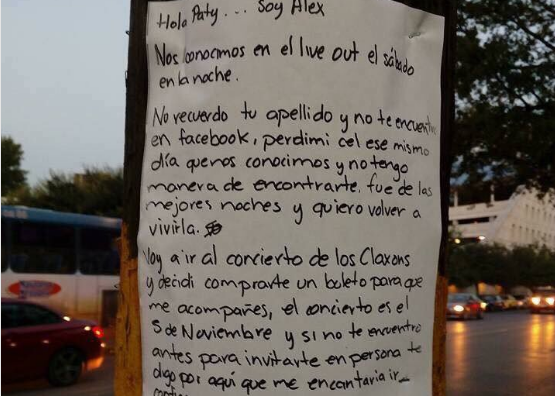 Hola Paty... Soy Alex
Nos conocimos en el live out el sábado
en la noche.
No recuerdo tu apellido y no te encuentro
en facebook, perdi mi cel ese mismo
día que nos conocimos y no tengo
manera de encontrarte. fue de las
mejores noches y quiero volver a
vivirla.
Voy a ir al concierto de los Claxons
y decidi comprarte un boleto para que
me acompañes, el concierto es el
5 de Noviembre y si no te encuentro
antes para invitarte en persona te
digo por aquí que me encantaria ir